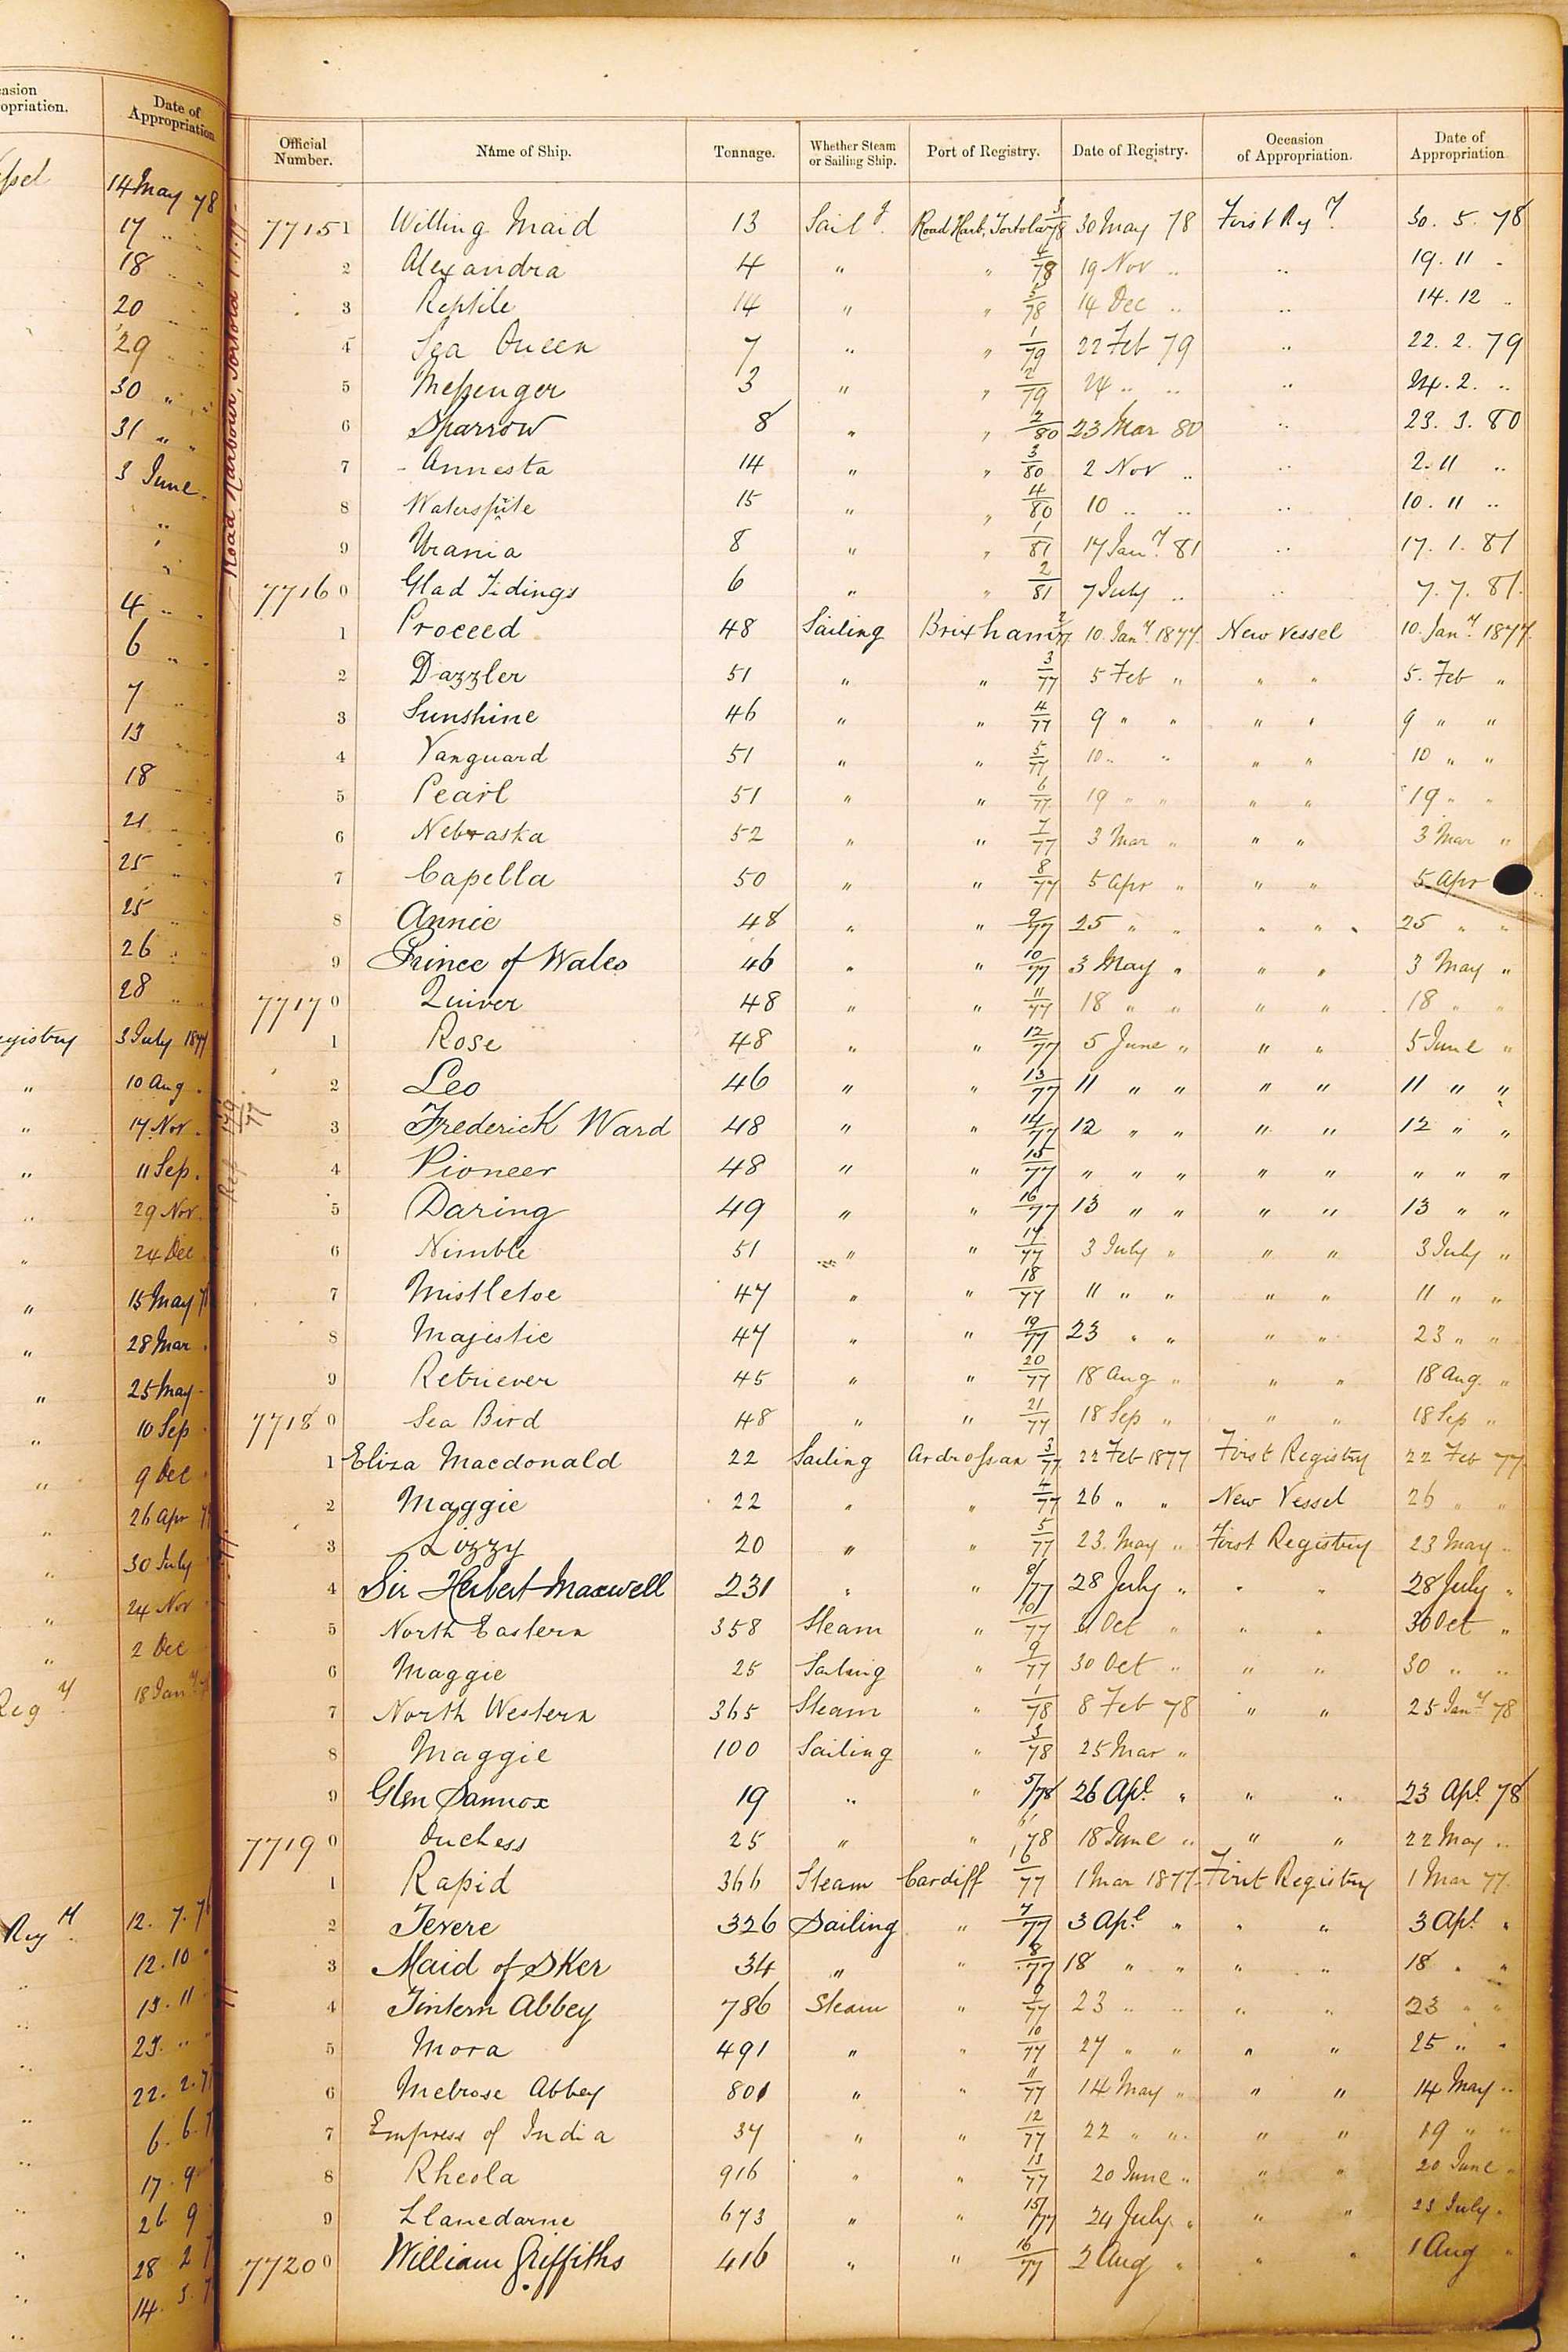 casion
opriation.
Date of
Appropriation
14 May 78
17 " "
18 " "
20 " "
29 "
30 " "
31 " "
3 June "
"
"
"
4 " "
6 "
7 "
13 "
18 "
21 "
25 "
25 "
26 "
28 " "
egistry 3 July 1877
" 10 Aug "
" 14 Nov "
" 11 Sep "
" 29 Nov "
" 24 Dec
" 15 May
" 28 Mar "
" 25 May "
" 10 Sep "
" 9 Dec
" 26 Apr
" 30 July
" 24 Nov
" 2 Dec
Reg y 18 Jan y
Reg y 12. 7. 7
" 12. 10 "
" 13. 11 "
" 23. " "
" 22. 2. 7
" 6. 6.
" 17. 9
" 26 9
" 28 2
" 14. 3
Road Harbour, Tortola
Official Number. Name of Ship. Tonnage. Whether Steam or Sailing Ship. Port of Registry. Date of Registry. Occasion of Appropriation. Date of Appropriation
77151 Willing Maid 13 Sail g. Road Harb, Tortola 3/78 30 May 78 First Reg y. 30. 5. 78
2 Alexandra 4 " " 4/78 19 Nov " " 19. 11 "
3 Reptile 14 " " 5/78 14 Dec " " 14. 12 "
4 Sea Queen 7 " " 1/79 22 Feb 79 " 22. 2. 79
5 Messenger 3 " " 2/79 24 " " " 24. 2. "
6 Sparrow 8 " " 2/80 23 Mar 80 " 23. 3. 80
7 Annesta 14 " " 3/80 2 Nov " " 2. 11 "
8 Waterspite 15 " " 4/80 10 " " " 10. 11 "
9 Urania 8 " " 1/81 17 Jan y. 81 " 17. 1. 81
77160 Glad Tidings 6 " " 2/81 7 July " " 7. 7. 81.
1 Proceed 48 Sailing Brixham 2/77 10 Jan y. 1877 New Vessel 10. Jan y. 1877
2 Dazzler 51 " " 3/77 5 Feb " " " 5. Feb "
3 Sunshine 46 " " 4/77 9 " " " " 9 " "
4 Vanguard 51 " " 5/77 10 " " " " 10 " "
5 Pearl 51 " " 6/77 19 " " " " 19 " "
6 Nebraska 52 " " 7/77 3 Mar " " " 3 Mar "
7 Capella 50 " " 8/77 5 Apr " " " 5 Apr
8 Annie 48 " " 9/77 25 " " " " 25 " "
9 Prince of Wales 46 " " 10/77 3 May " " " 3 May "
77170 Quiver 48 " " 11/77 18 " " " " 18 " "
1 Rose 48 " " 12/77 5 June " " " 5 June "
2 Leo 46 " " 13/77 11 " " " " 11 " "
3 Frederick Ward 48 " " 14/77 12 " " " " 12 " "
4 Pioneer 48 " " 15/77 " " " " " " " "
5 Daring 49 " " 16/77 13 " " " " 13 " "
6 Nimble 51 " " 17/77 3 July " " " 3 July "
7 Mistletoe 47 " " 18/77 11 " " " " 11 " "
8 Majestic 47 " " 19/77 23 " " " " 23 " "
9 Retriever 45 " " 20/77 18 Aug " " " 18 Aug. "
77180 Sea Bird 48 " " 21/77 18 Sep " " " 18 Sep "
1 Eliza Macdonald 22 Sailing Ardrossan 3/77 22 Feb 1877 First Registry 22 Feb 77
2 Maggie 22 " " 4/77 26 " " New Vessel 26 " "
3 Lizzy 20 " " 5/77 23. May " First Registry 23 May "
4 Sir Herbert Maxwell 231 " " 8/77 28 July " " " 28 July "
5 North Eastern 358 Steam " 10/77 Oct " " " 30 Oct "
6 Maggie 25 Sailing " 9/77 30 Oct " " " 30 " "
7 North Western 365 Steam " 1/78 8 Feb 78 " " 25 Jan y 78
8 Maggie 100 Sailing " 3/78 25 Mar "
9 Glen Sannox 19 " " 5/78 26 Apl. " " " 23 Apl. 78
77190 Duchess 25 " " 6/78 18 June " " " 22 May "
1 Rapid 366 Steam Cardiff 6/77 1 Mar 1877 First Registry 1 Mar 77.
2 Tevere 326 Sailing " 7/77 3 Apl. " " " 3 Apl. "
3 Maid of Sker 34 " " 8/77 18 " " " " 18 " "
4 Tintern Abbey 786 Steam " 9/77 23 " " " " 23 " "
5 Mora 491 " " 10/77 27 " " " " 25 " "
6 Melrose Abbey 801 " " 11/77 14 May " " " 14 May "
7 Empress of India 37 " " 12/77 22 " " " " 19 " "
8 Rheola 916 " " 13/77 20 June " " " 20 June "
9 Llanedarne 673 " " 15/77 24 July " " " 23 July "
77200 William Griffiths 416 " " 16/77 2 Aug " " " 1 Aug "